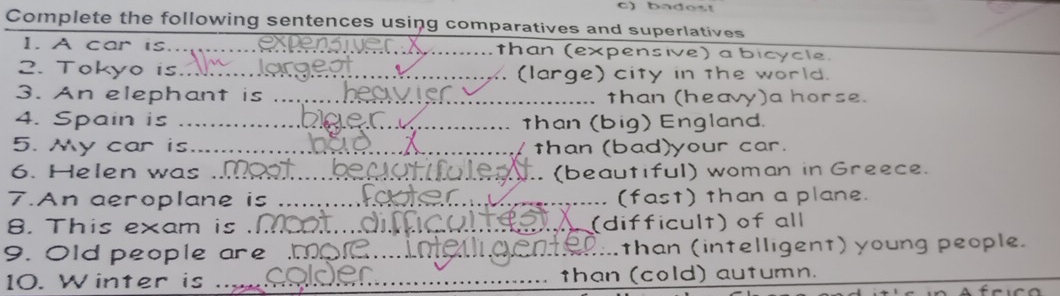 c) badest
Complete the following sentences using comparatives and superlatives
1. A car is.... expensiver X ....than (expensive) a bicycle.
2. Tokyo is... the largest ✓ .... (large) city in the world.
3. An elephant is .... heavier ✓ .... than (heavy)a horse.
4. Spain is .... biger ✓ .... than (big) England.
5. My car is.... bad X .... than (bad)your car.
6. Helen was ..most beautifulest X.. (beautiful) woman in Greece.
7.An aeroplane is .... faster ✓ .... (fast) than a plane.
8. This exam is .most difficultest X (difficult) of all
9. Old people are .more intelligenter....than (intelligent) young people.
10. Winter is .... colder ✓ .... than (cold) autumn.
and it's in Africa